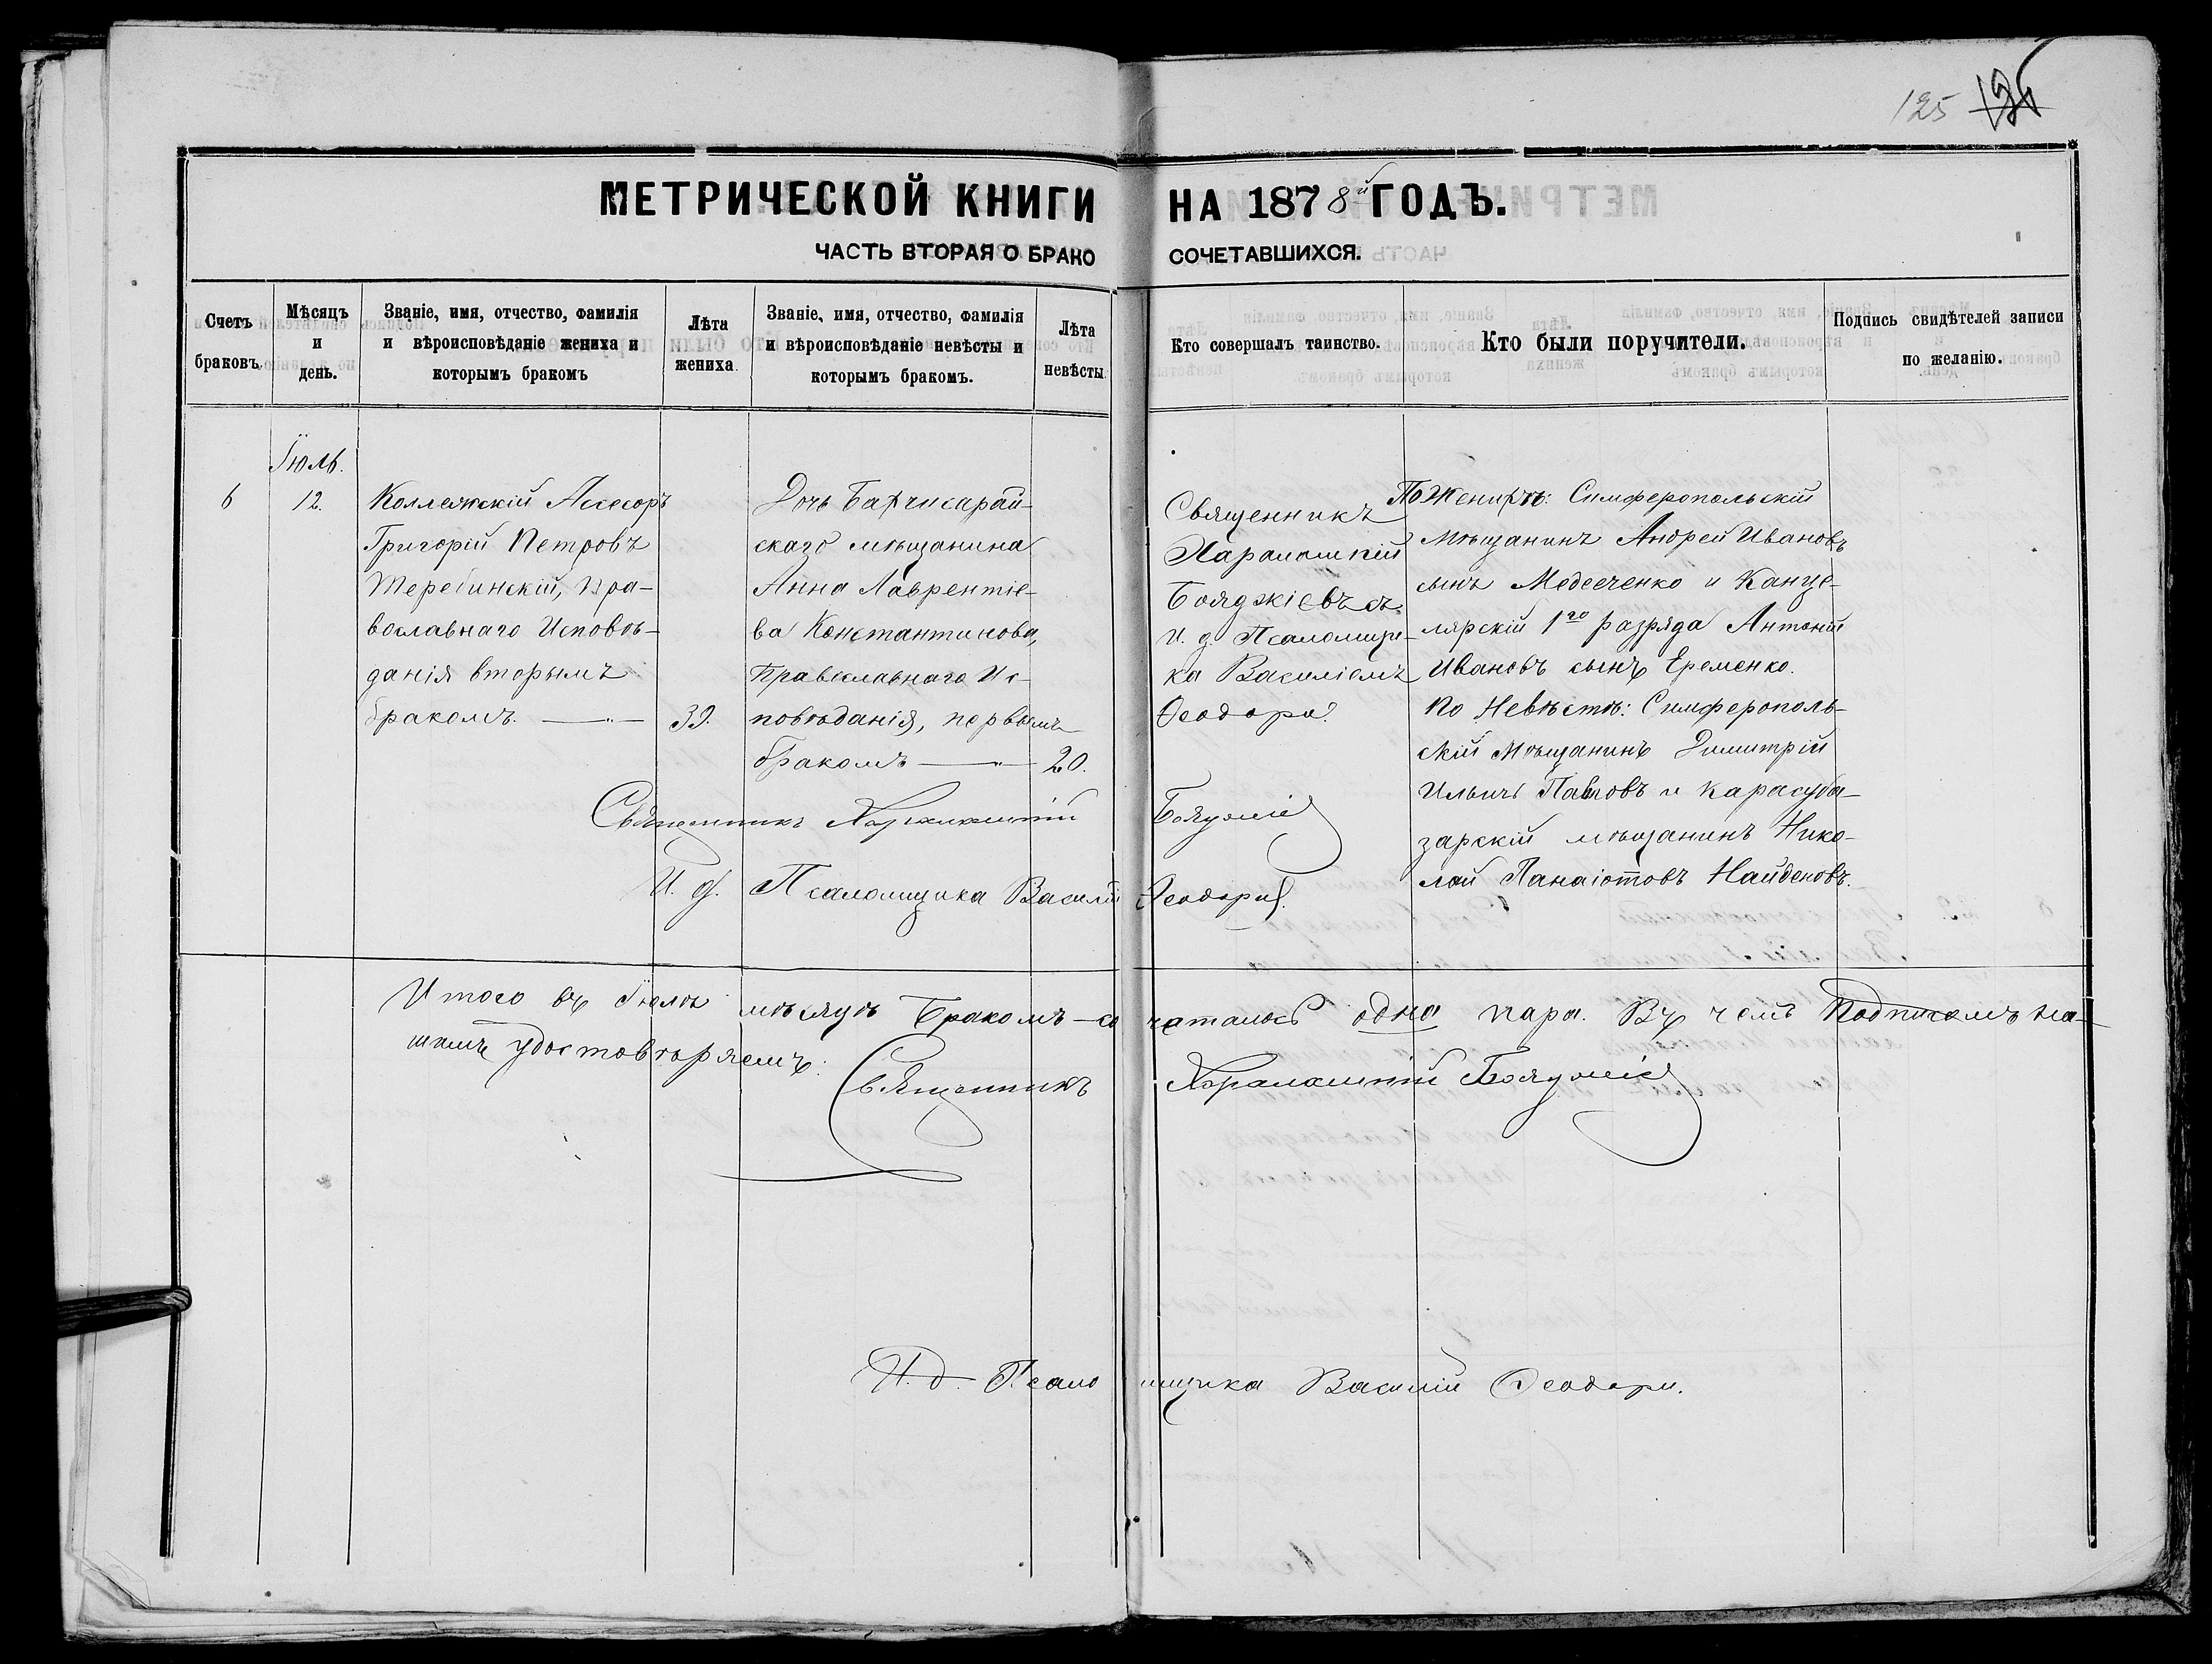 125
МЕТРИЧЕСКОЙ КНИГИ НА 1878й ГОДЪ.
ЧАСТЬ ВТОРАЯ О БРАКО СОЧЕТАВШИХСЯ.
Счетъ браковъ.
Мѣсяцъ и день.
Званіе, имя, отчество, фамилія
и вѣроисповѣданіе жениха и
которымъ бракомъ
Лѣта
жениха.
Званіе, имя, отчество, фамилія
и вѣроисповѣданіе невѣсты и
которымъ бракомъ.
Лѣта
невѣсты
Кто совершалъ таинство.
Кто были поручители.
Подпись свидѣтелей записи
по желанію.
Іюль.
6
12.
Коллежскій Ассесоръ
Григорій Петровъ
Теребинскій, Пра-
вославнаго Исповѣ-
данія вторымъ
бракомъ.
39.
Дочь Бахчисарай-
скаго мѣщанина
Анна Лаврентіе-
ва Константинова,
Православнаго Ис-
повѣданія, первымъ
бракомъ
20.
Священникъ
Харалампій
Бояджіевъ съ
и. д. Псаломщи-
ка Василіемъ
Ѳеодори.
По Женихѣ: Симферопольскій
Мѣщанинъ Андрей Ивановъ
сынъ Медеченко и Канце-
лярскій 1го разряда Антоній
Ивановъ сынъ Еременко.
По Невѣстѣ: Симферополь-
скій Мѣщанинъ Димитрій
Ильичъ Павловъ и Карасуба-
зарскій мѣщанинъ Нико-
лай Панаіотовъ Найденовъ.
Священникъ Харалампій
И. д. Псаломщика Василій Ѳеодори.
Итого въ Іюлѣ мѣсяцѣ Бракомъ сочеталось одна пара. Въ чемъ Подписомъ на-
шимъ удостовѣряемъ:
Священникъ Харалампій
И. д. Псаломщика Василій Ѳеодори.